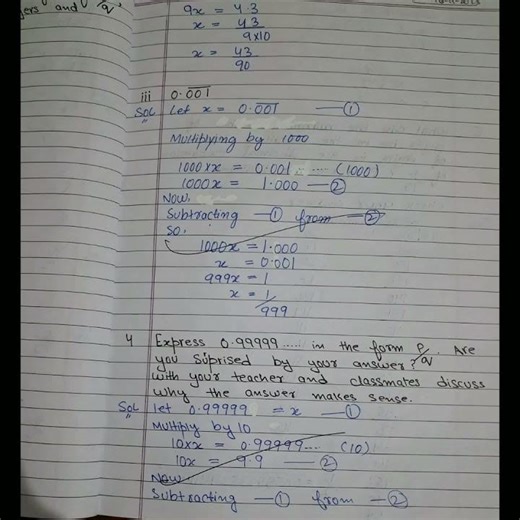 and p/q
9x = 4.3
x = 43
9x10
x = 43
90
iii 0.0̅0̅1̅
Sol Let x = 0.0̅0̅1̅ —①
Multiplying by 1000
1000xx = 0.001 ..... (1000)
1000x = 1.000 —②
Now,
Subtracting —① from —②
So,
1000x = 1.000
x = 0.001
999x = 1
x = 1/999
4 Express 0.99999..... in the form p/q. Are
you Suprised by your answer?
with your teacher and classmates discuss
why the answer makes sense.
Sol let 0.99999 = x —①
Multiply by 10
10xx = 0.99999.... (10)
10x = 9.9 —②
Now,
Subtracting —① from —②